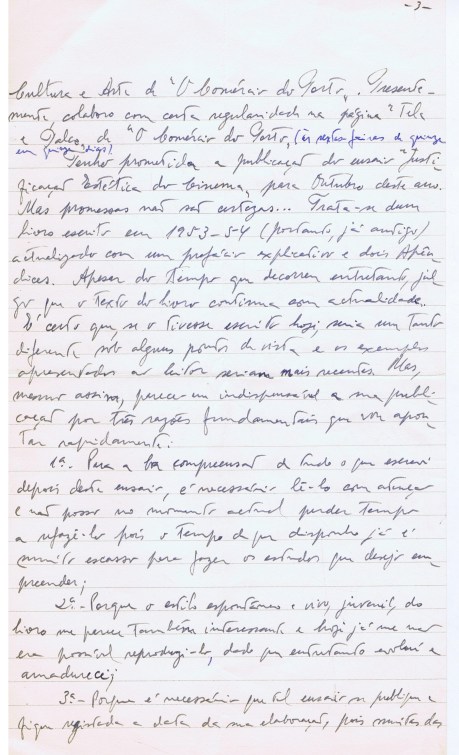 -3-
Cultura e Arte de "O Comércio do Porto". Presente-
mente, colaboro com certa regularidade na página "Tela
e Palco" de "O Comércio do Porto" (às sextas-feiras de quinze
em quinze dias)
Tenho prometida a publicação do ensaio "Justi-
ficação Estética do Cinema" para Outubro deste ano.
Mas promessas não são certezas... Trata-se dum
livro escrito em 1953-5-4 (portanto, já antigo)
actualizado com um prefácio explicativo e dois Apên-
dices. Apesar do tempo que decorreu entretanto, jul-
go que o texto do livro continua com actualidade.
É certo que, se o tivesse escrito hoje, seria um tanto
diferente sob alguns pontos de vista e os exemplos
apresentados ao leitor seriam mais recentes. Mas,
mesmo assim, parece-me indispensável a sua publi-
cação por três razões fundamentais que vou apon-
tar rapidamente:
1ª.- Para a boa compreensão de tudo o que escrevi
depois deste ensaio, é necessário lê-lo com atenção
e não posso no momento actual perder tempo
a refazê-lo pois o tempo de que disponho já é
muito escasso para fazer os estudos que desejo em-
preender;
2ª.- Porque o estilo espontâneo e vivo, juvenil, do
livro me parece também interessante e hoje já me não
era possível reproduzi-lo, dado que entretanto evoluí e
amadureci;
3ª.- Porque é necessário que tal ensaio se publique e
fique registada a data da sua elaboração, pois muitas das